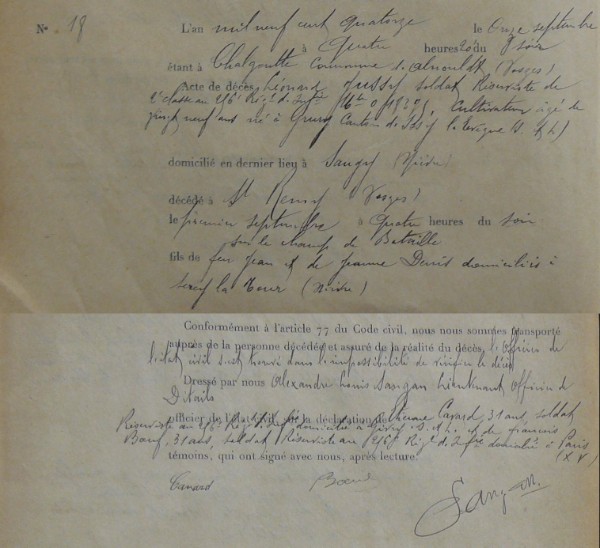 N° 18 L'an mil neuf cent quatorze le Onze septembre
à quatre heures du soir
étant à commune d' (Vosges)
Acte de décès Léonard soldat Réserviste de
2e classe au 216e Régt d'Infie Cultivateur âgé de
vingt neuf ans né à Cury Canton d' l'évêque (S. & L.)
domicilié en dernier lieu à (Nièvre)
décédé à St Remy (Vosges)
le premier septembre à Quatre heures du soir
sur le champ de Bataille
fils de feu Jean & de Jeanne Denis domiciliés à
Cercy la Tour (Nièvre)
Conformément à l'article 77 du Code civil, nous nous sommes transporté
auprès de la personne décédée et assuré de la réalité du décès, l'Officier de
l'état civil s'est trouvé dans l'impossibilité de vérifier le décès
Dressé par nous Alexandre Louis Sangan Lieutenant Officier de
Détails
officier de l'état civil, sur la déclaration de 31 ans, soldat
Réserviste au Régt domicilié à S. & L. et de françois
Boeuf, 31 ans, soldat Réserviste au 216e Régt d'Infie domicilié à Paris
témoins, qui ont signé avec nous, après lecture. (XV)
Boeuf Sangan